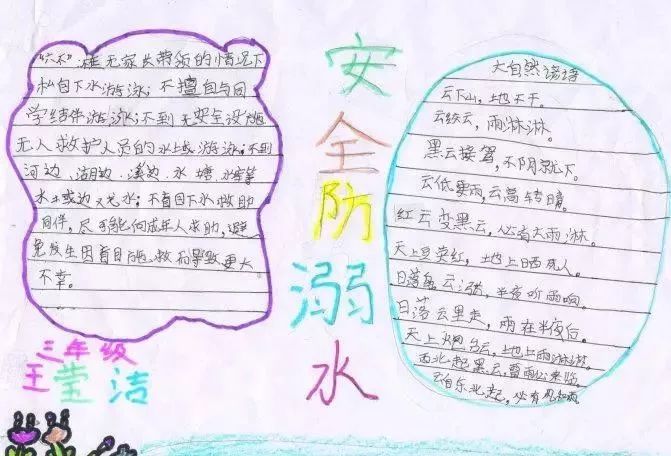 "六不":在无家长带领的情况下
私自下水游泳;不擅自与同
学结伴游泳;不到无安全设施
无人救护人员的水域游泳;不到
河边、湖边、溪边、水塘、水库等
水域边玩水;不盲目下水救助
同伴,尽可能向成年人求助,避
免发生因盲目施救而导致更大
不幸。
三年级
王莹洁
安全防溺水
大自然谚语
云下山,地不干。
云绞云,雨淋淋。
黑云接驾,不阴就下。
云低要雨,云高转晴。
红云变黑云,必有大雨淋。
天上豆荚红,地上晒死人。
日落乌云涨,半夜听雨响。
日落云里走,雨在半夜后。
天上云,地上雨淋淋。
西北起黑云,雷雨必来临。
云北起,必有